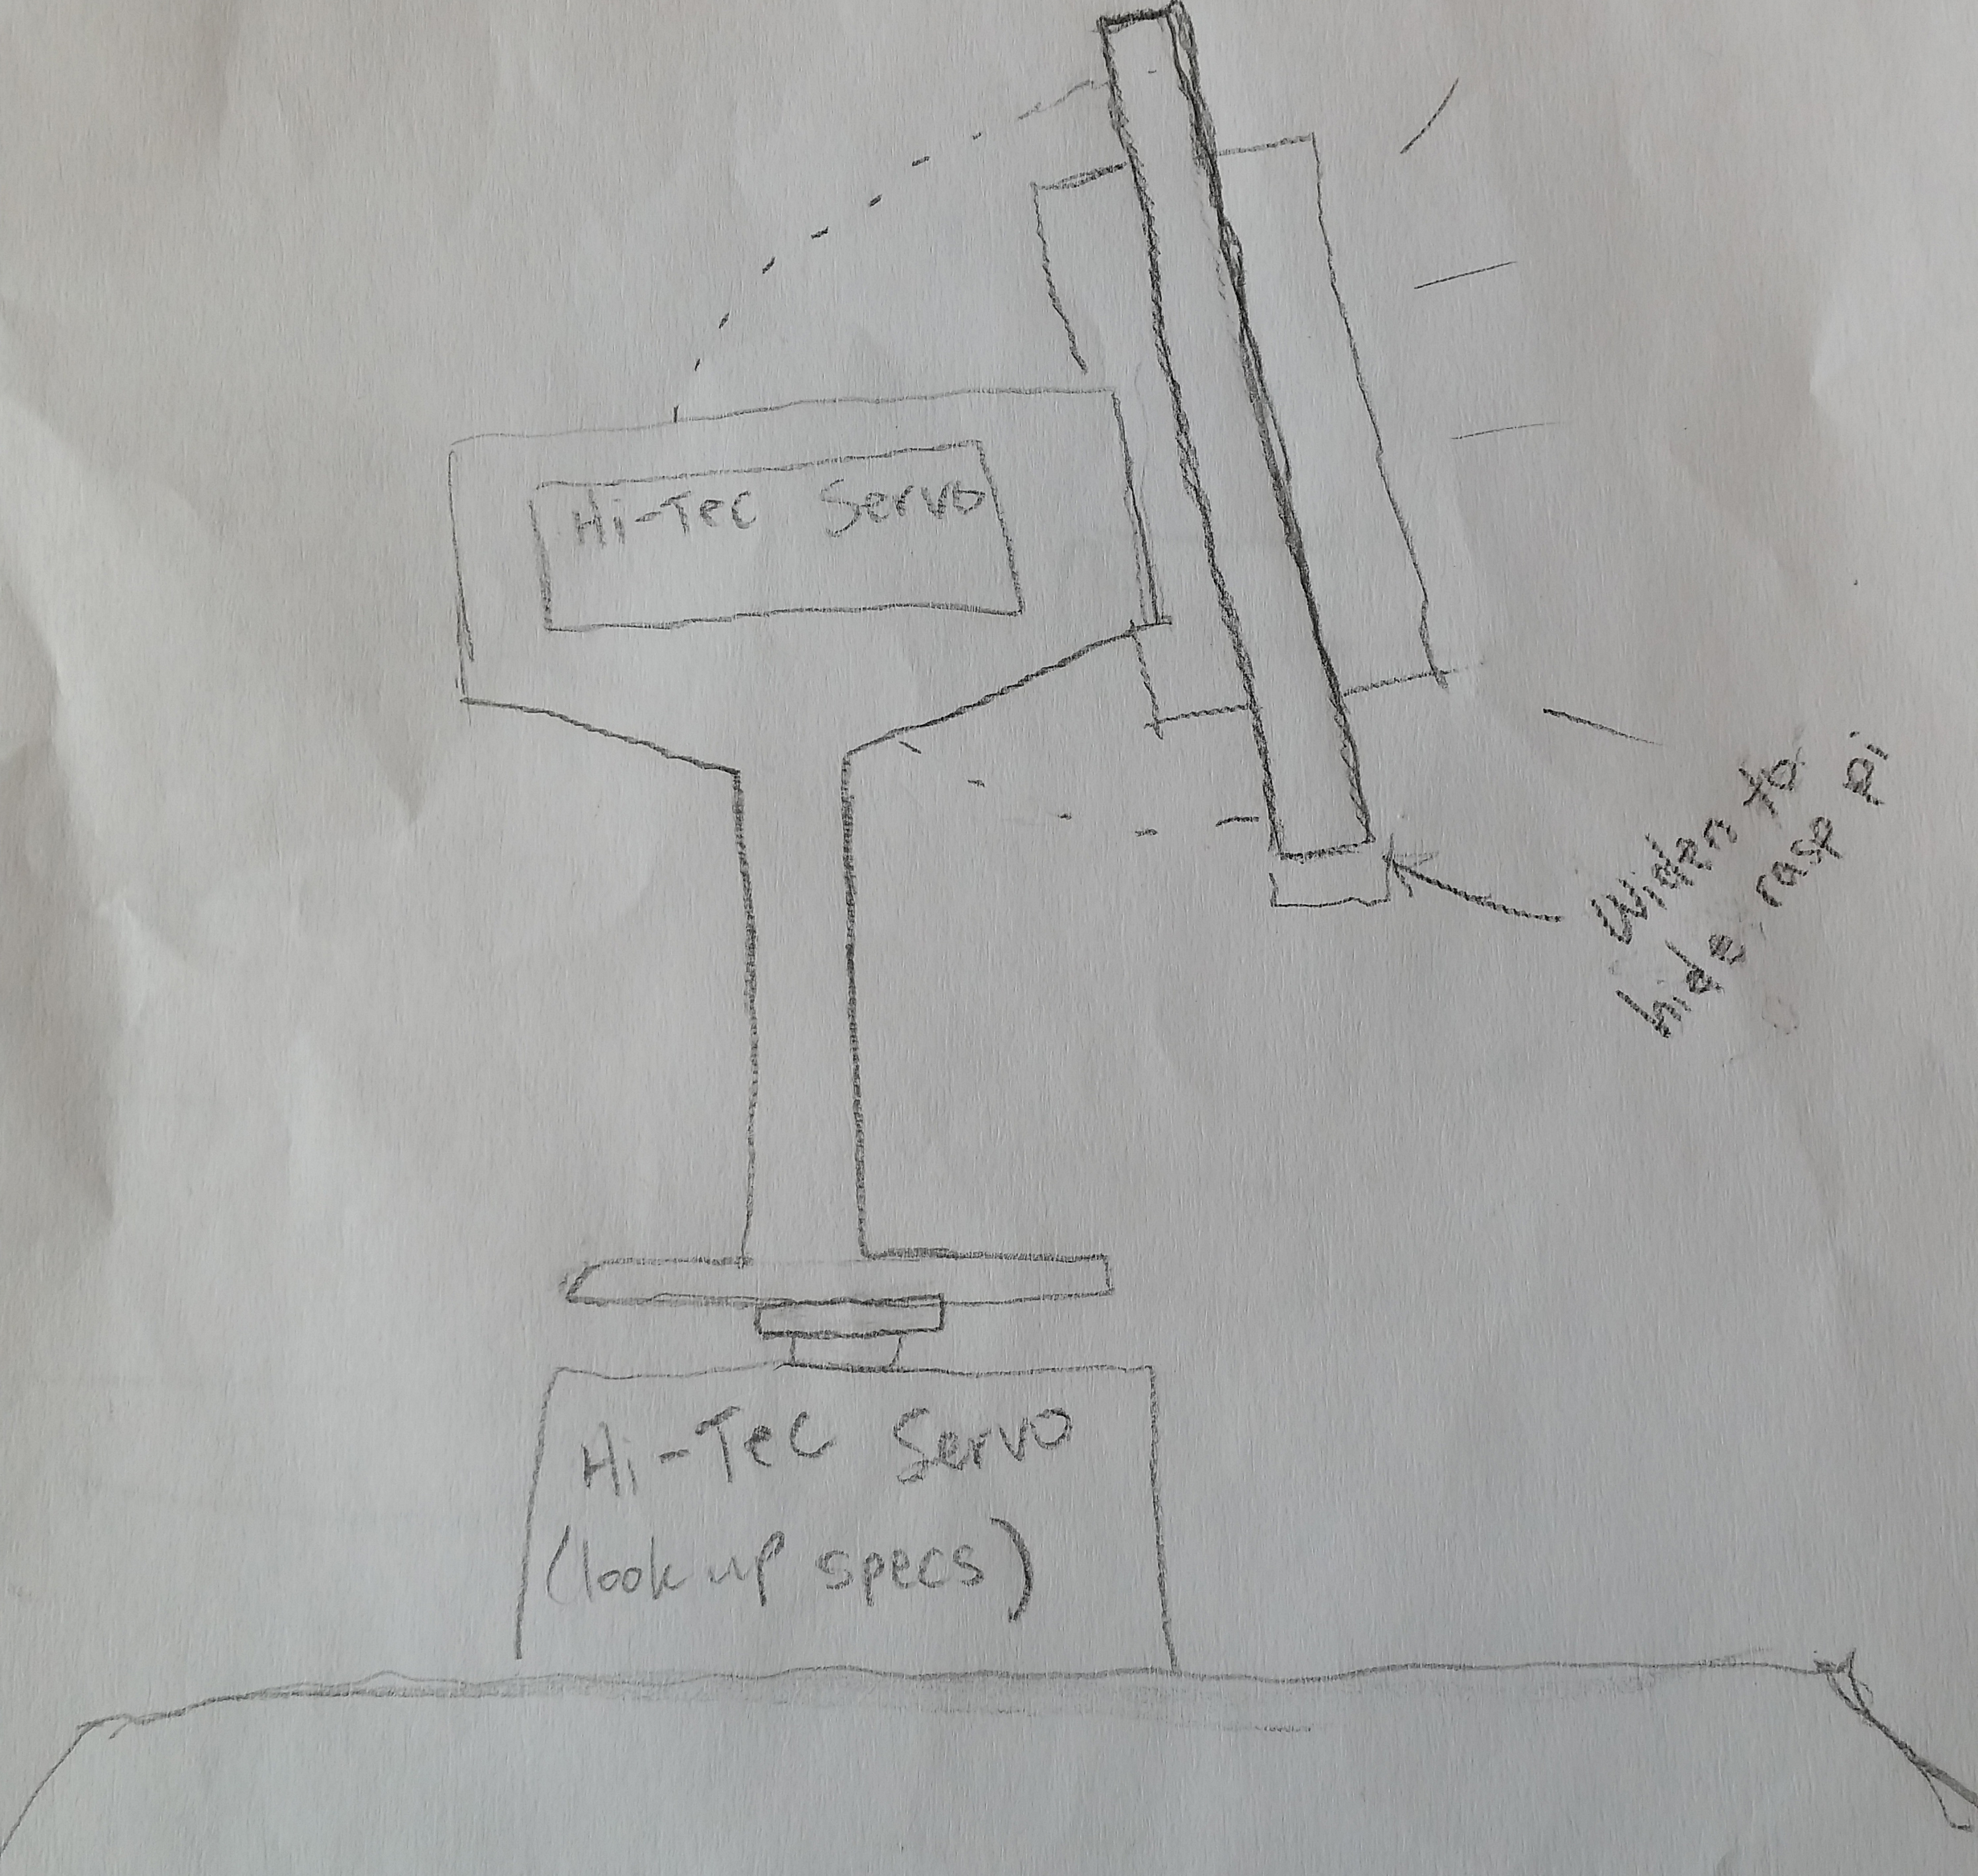 Hi-Tec Servo
widen to
hide rasp pi
Hi-Tec Servo
(look up specs)